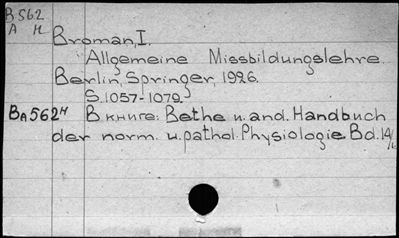 B 562
A H
Broman, I.
Allgemeine Missbildungslehre.
Berlin, Springer, 1926.
S. 1057-1079.
BA562H В книге: Bethe u. and. Handbuch
der norm. u. pathol. Physiologie. Bd. 14/1.